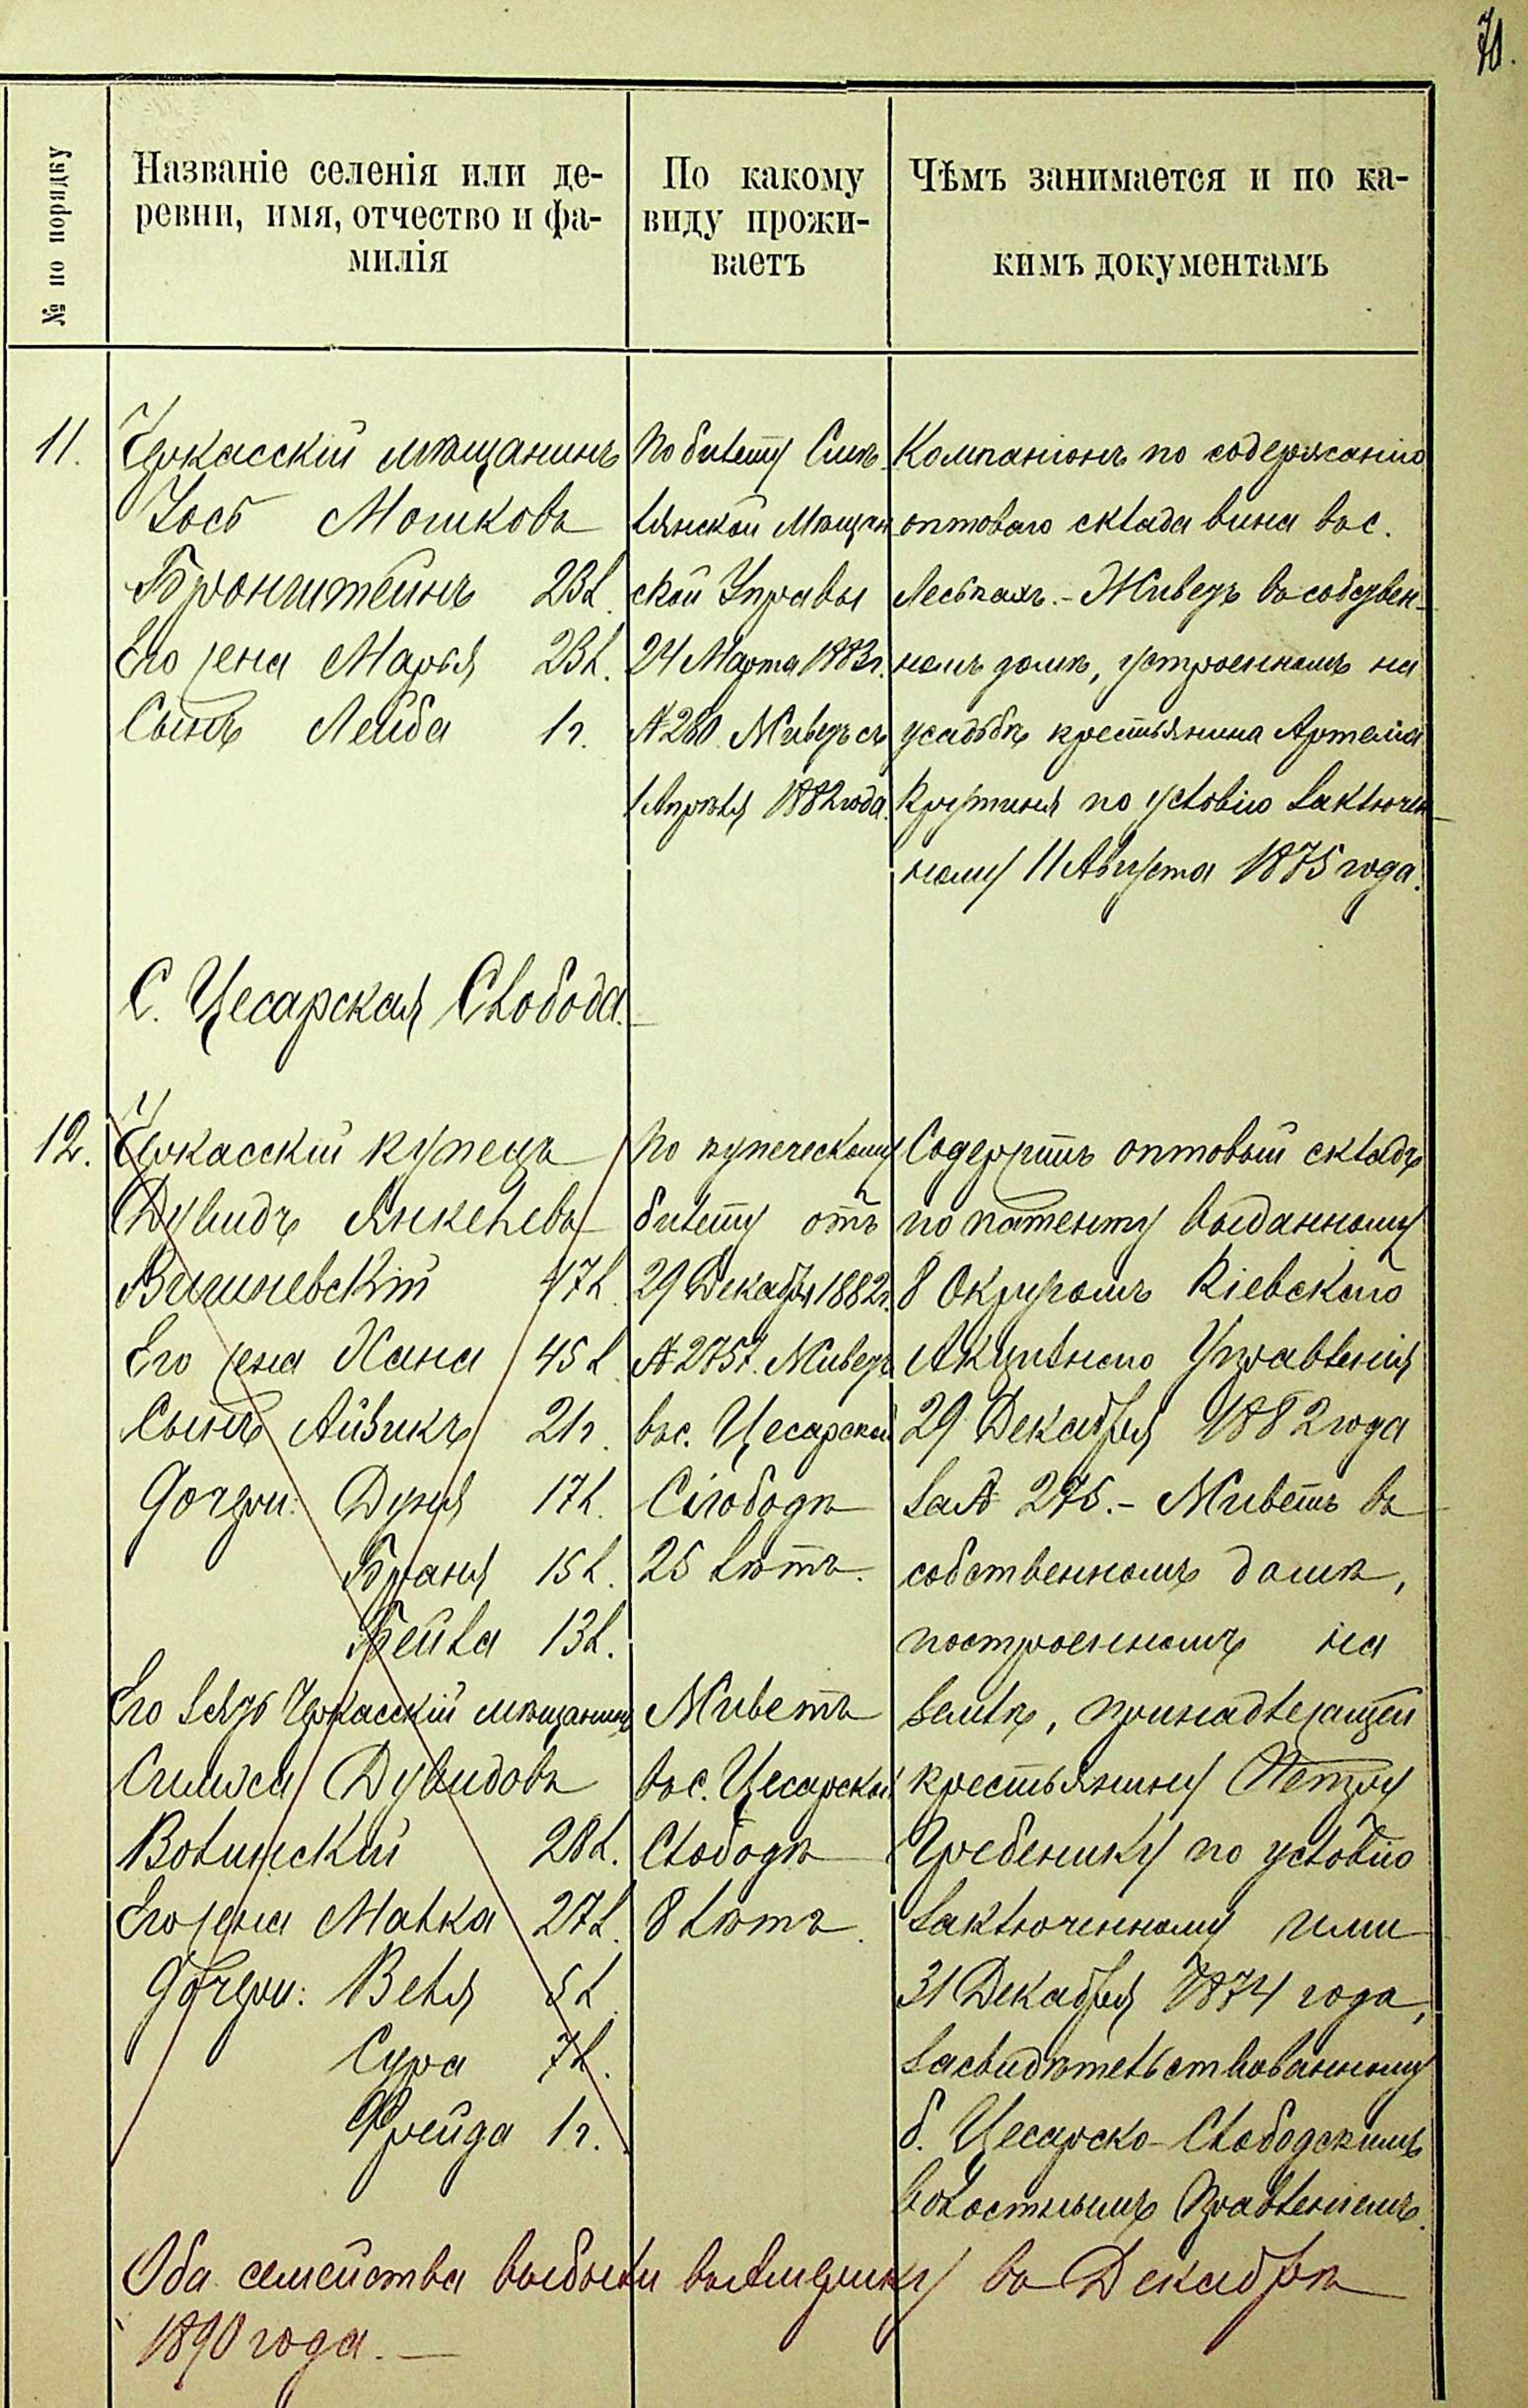 70.
№ по порядку
Названіе селенія или де-
ревни, имя, отчество и фа-
милія
По какому
виду прожи-
ваетъ
Чѣмъ занимается и по ка-
кимъ документамъ
11.
Черкасскій мѣщанинъ
Іось Мошковъ
Бронштейнъ 23 л.
Его жена Марья 23 л.
Сынъ Лейба 1 г.
По билету Смѣ-
лянской Мѣщан
ской Управы
24 Марта 1883 г.
№ 280. Живетъ съ
1 Апрѣля 1882 года.
Компаніонъ по содержанію
оптоваго склада вина въ с.
Леськахъ. - Живетъ въ собствен-
номъ домѣ, устроенномъ на
усадьбѣ крестьянина Артема
по условію заключен-
ному 11 Августа 1875 года.
С. Цесарская Слобода.
12.
Черкасскій купецъ
Дувидъ Янкелевъ
Вишневскій 47 л.
Его жена Хана 45 л.
Сынъ Айзикъ 21 г.
Дочери: Дуня 17 л.
Браня 15 л.
Бейла 13 л.
Его зять Черкасскій мѣщанинъ
Симха Дувидовъ
Волинскій 28 л.
Его жена Малка 27 л.
Дочери: Веля 5 л.
Сура 7 л.
Фрейда 1 г.
По купеческому
билету отъ
29 Декабря 1882 г.
№ 2757. Живетъ
въ с. Цесарской
Слободѣ
25 лѣтъ.
Живетъ
въ с. Цесарской
Слободѣ
8 лѣтъ.
Содержитъ оптовый складъ
по патенту выданному
8 Округомъ Кіевскаго
Акцизнаго Управленія
29 Декабря 1882 года
за № 275. - Живетъ въ
собственномъ домѣ,
построенномъ на
землѣ, принадлежащей
крестьянину Петру
Гребенику по условію
заключенному ими
31 Декабря 1874 года,
засвидѣтельствованному
б. Цесарско-Слободскимъ
волостнымъ Правленіемъ.
Оба семейства выбыли въ Америку въ Декабрѣ
1890 года. —